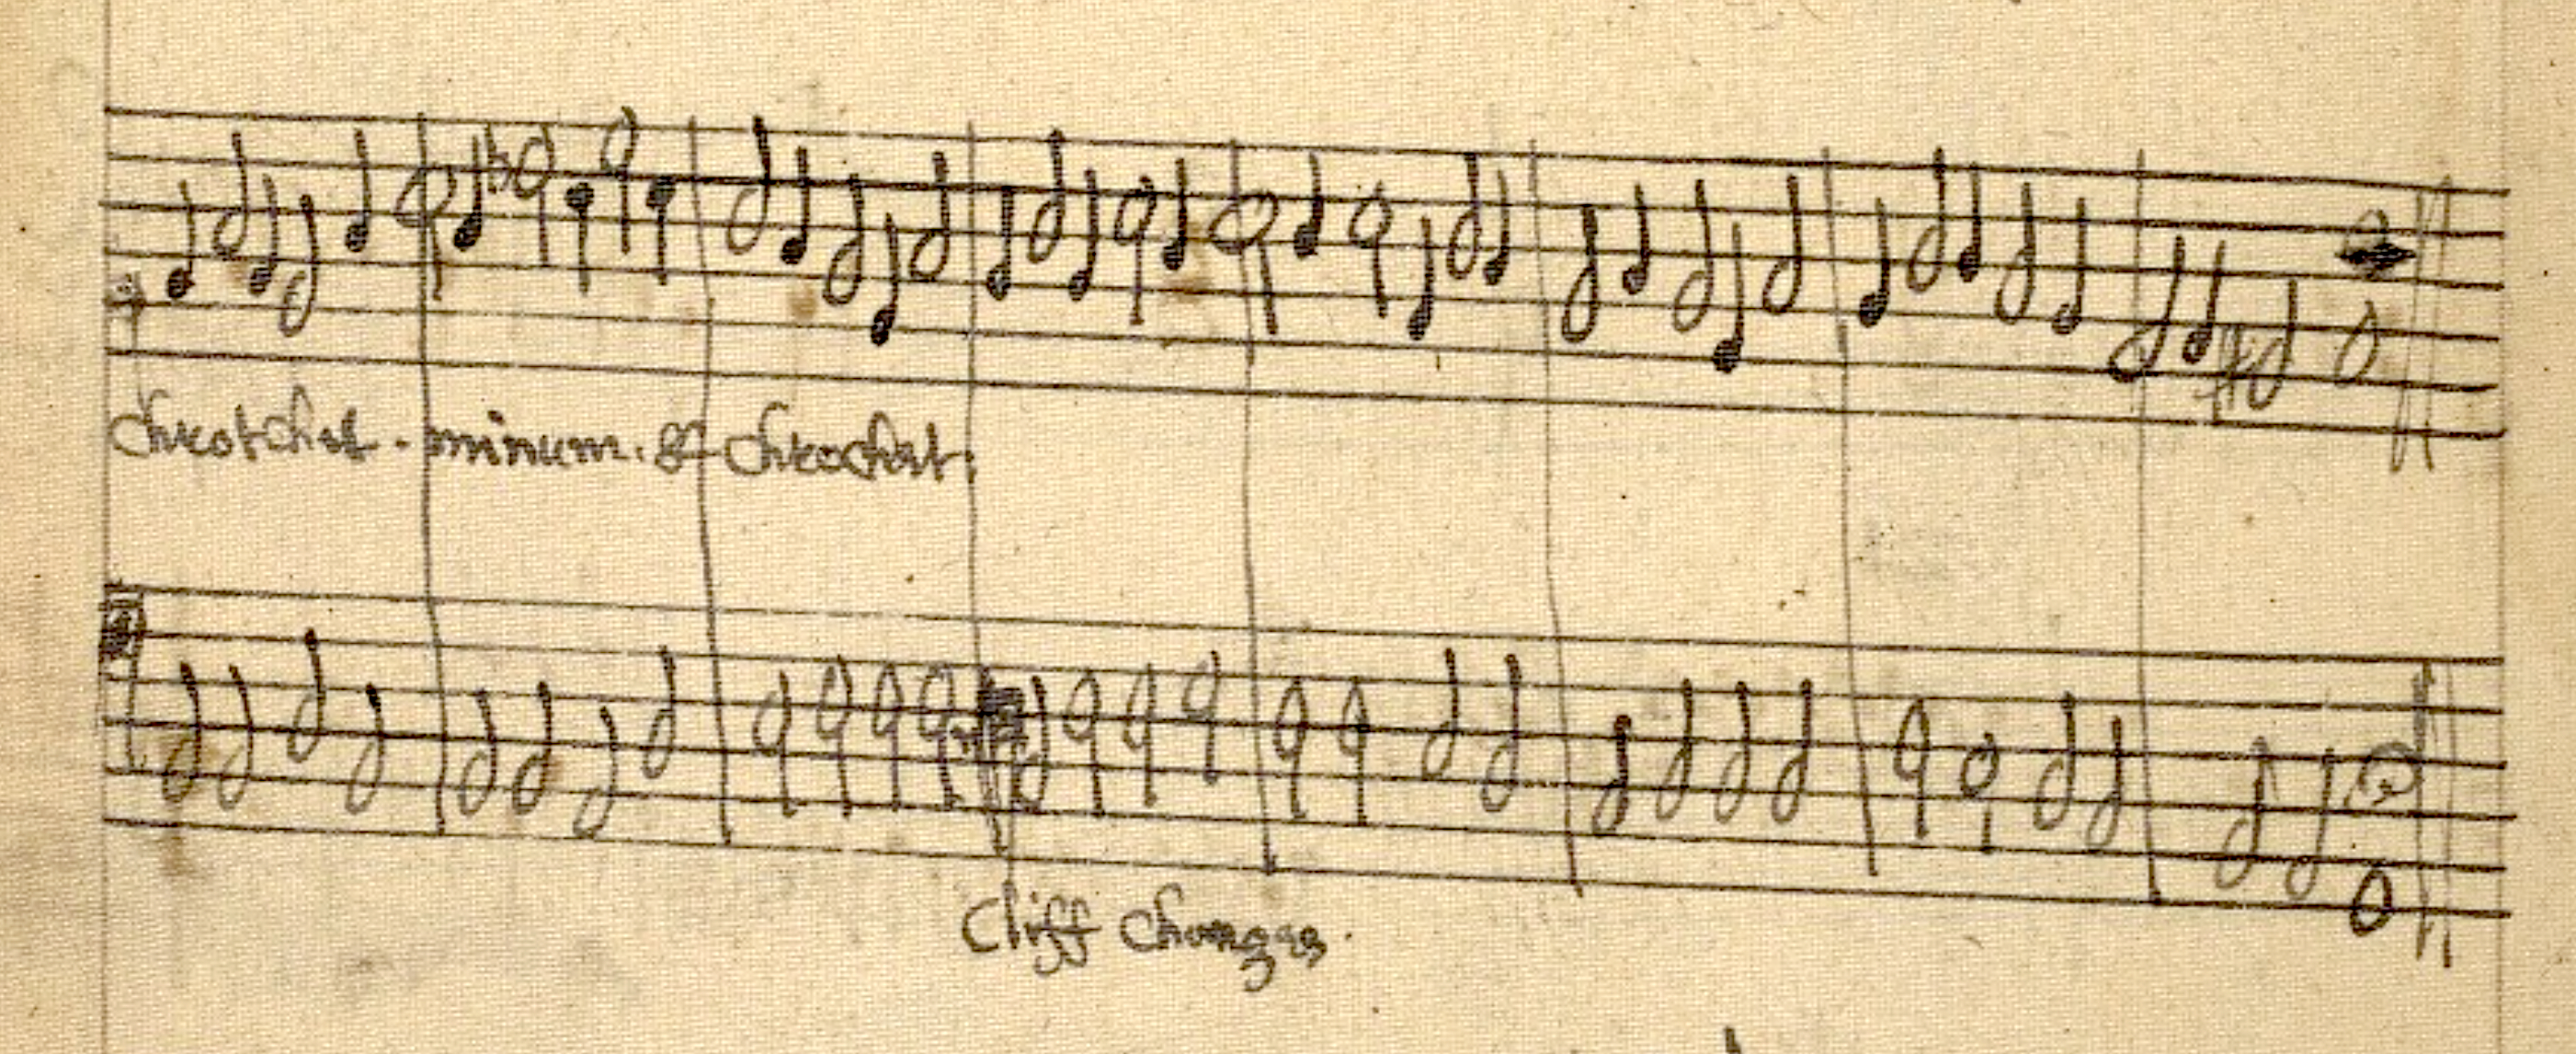 Chrotchet - minum. & Chrochet.
Cliff Changes.